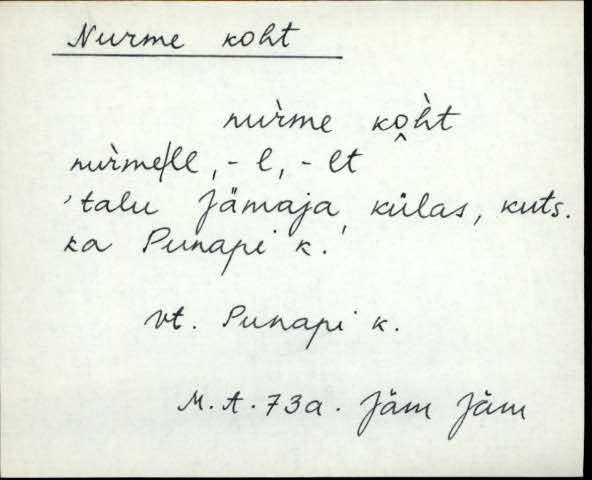 Nurme koht
nur̀me ko̭h̀t
nur̀me/le, -l, -lt
'talu Jämaja külas, kuts.
ka Punapi k.'
vt. Punapi k.
M.A. 73a. Jäm Jäm